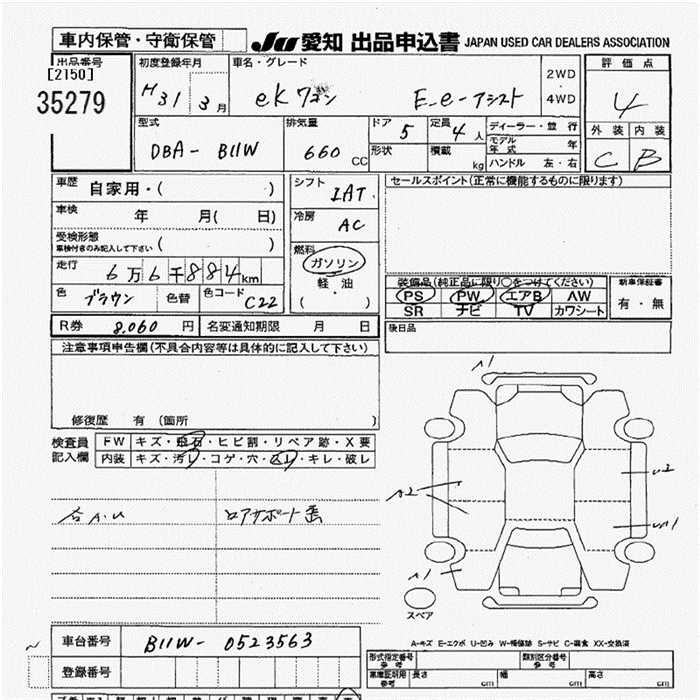 車内保管・守衛保管 JU 愛知 出品申込書 JAPAN USED CAR DEALERS ASSOCIATION
出品番号 初度登録年月 車名・グレード 評価点
[2150] 2WD
35279 H31 3月 eKワゴン E-e-アシスト 4WD 4
型式 排気量 ドア 5 定員 4人 ディーラー・並行 外装 内装
DBA- B11W 660 CC 形状 積載 kg モデル年式 年 C B
ハンドル 左・右
車歴 自家用・( ) シフト IAT セールスポイント(正常に機能するものに限ります)
車検 年 月( 日) 冷房 AC
受検形態 ( )
車検付きのみ記入して下さい 燃料
走行 6万6千884km ガソリン
軽・油
色 ブラウン 色替 色コード C22 ( )
装備品(純正品に限り○をつけてください) 新車保証書
PS PW エアB AW 有・無
SR ナビ TV カワシート
R券 8,060 円 名変通知期限 月 日 後日品
注意事項申告欄(不具合内容等は具体的に記入して下さい)
修復歴 有 (箇所 )
検査員 FW キズ・飛石・ヒビ割・リペア跡・X要
記入欄 内装 キズ・汚レ・コゲ・穴・スレ・キレ・破レ
A1
A2
U2
A1
スペア
A-キズ E-エクボ U-凹み W-補修跡 S-サビ C-腐食 XX-交換済
車台番号 B11W- 0523563
登録番号
形式指定番号 参考 類別区分番号 参考
車庫証明用 参考 長さ cm 幅 cm 高さ cm